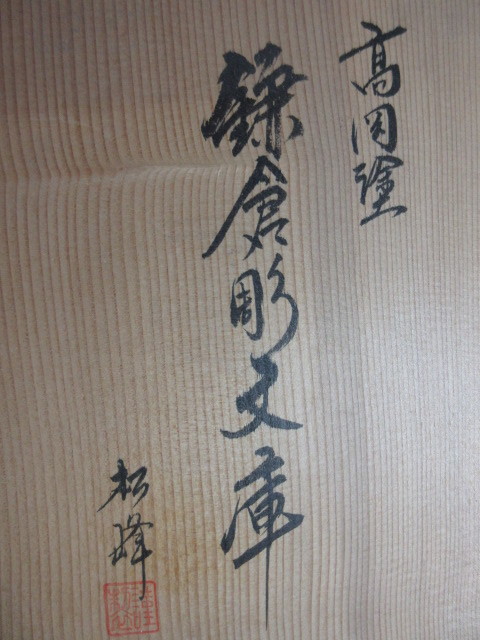 高岡塗
鎌倉彫文庫
松峰